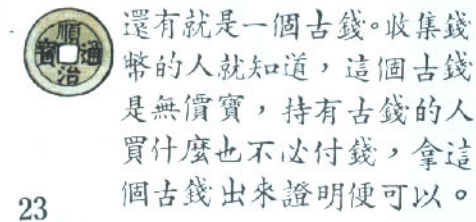 順治通寶
還有就是一個古錢。收集錢
幣的人就知道，這個古錢
是無價寶，持有古錢的人
買什麼也不必付錢，拿這
個古錢出來證明便可以。
23